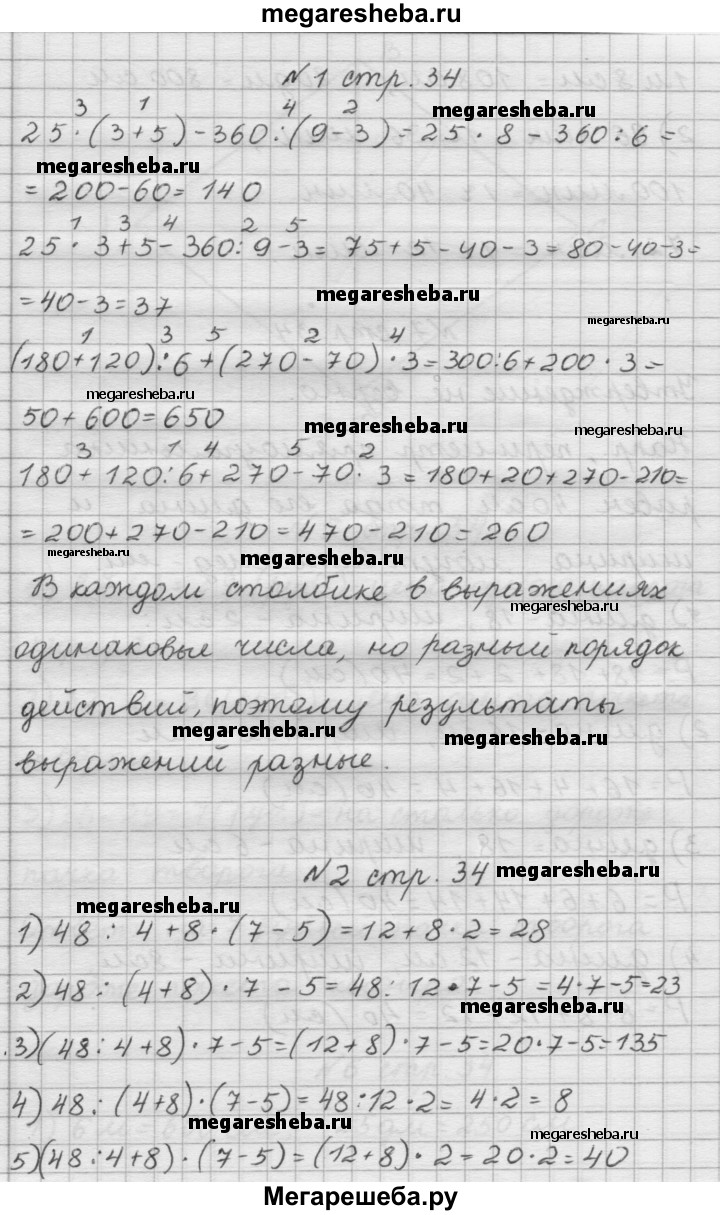 megaresheba.ru
№1 стр. 34
3 1 4 2
megaresheba.ru
25 · (3+5) - 360 : (9-3) = 25 · 8 - 360 : 6 =
megaresheba.ru
= 200-60 = 140
1 3 4 2 5
25 · 3+5- 360: 9-3 = 75+5-40-3=80-40-3=
megaresheba.ru
=40-3=37
megaresheba.ru
1 3 5 2 4
(180+120):6+(270-70) · 3=300:6+200 · 3=
megaresheba.ru
50+600=650
megaresheba.ru
megaresheba.ru
3 1 4 5 2
180+ 120:6+270-70 · 3 =180+20+270-210=
= 200+270-210=470-210=260
megaresheba.ru
megaresheba.ru
В каждом столбике в выражениях
megaresheba.ru
одинаковые числа, но разный порядок
действий, поэтому результаты
megaresheba.ru
megaresheba.ru
выражений разные.
№2 стр. 34
megaresheba.ru
megaresheba.ru
1) 48 : 4+8 · (7-5)=12+8 · 2=28
2) 48 : (4+8) · 7 - 5=48: 12 · 7-5 =4·7-5=23
megaresheba.ru
3)(48:4+8) · 7-5=(12+8) · 7-5=20·7-5=135
4) 48 : (4+8) · (7-5)=48:12 · 2= 4·2= 8
megaresheba.ru
megaresheba.ru
5)(48:4+8) · (7-5)=(12+8) · 2=20·2=40
Мегарешеба.ру